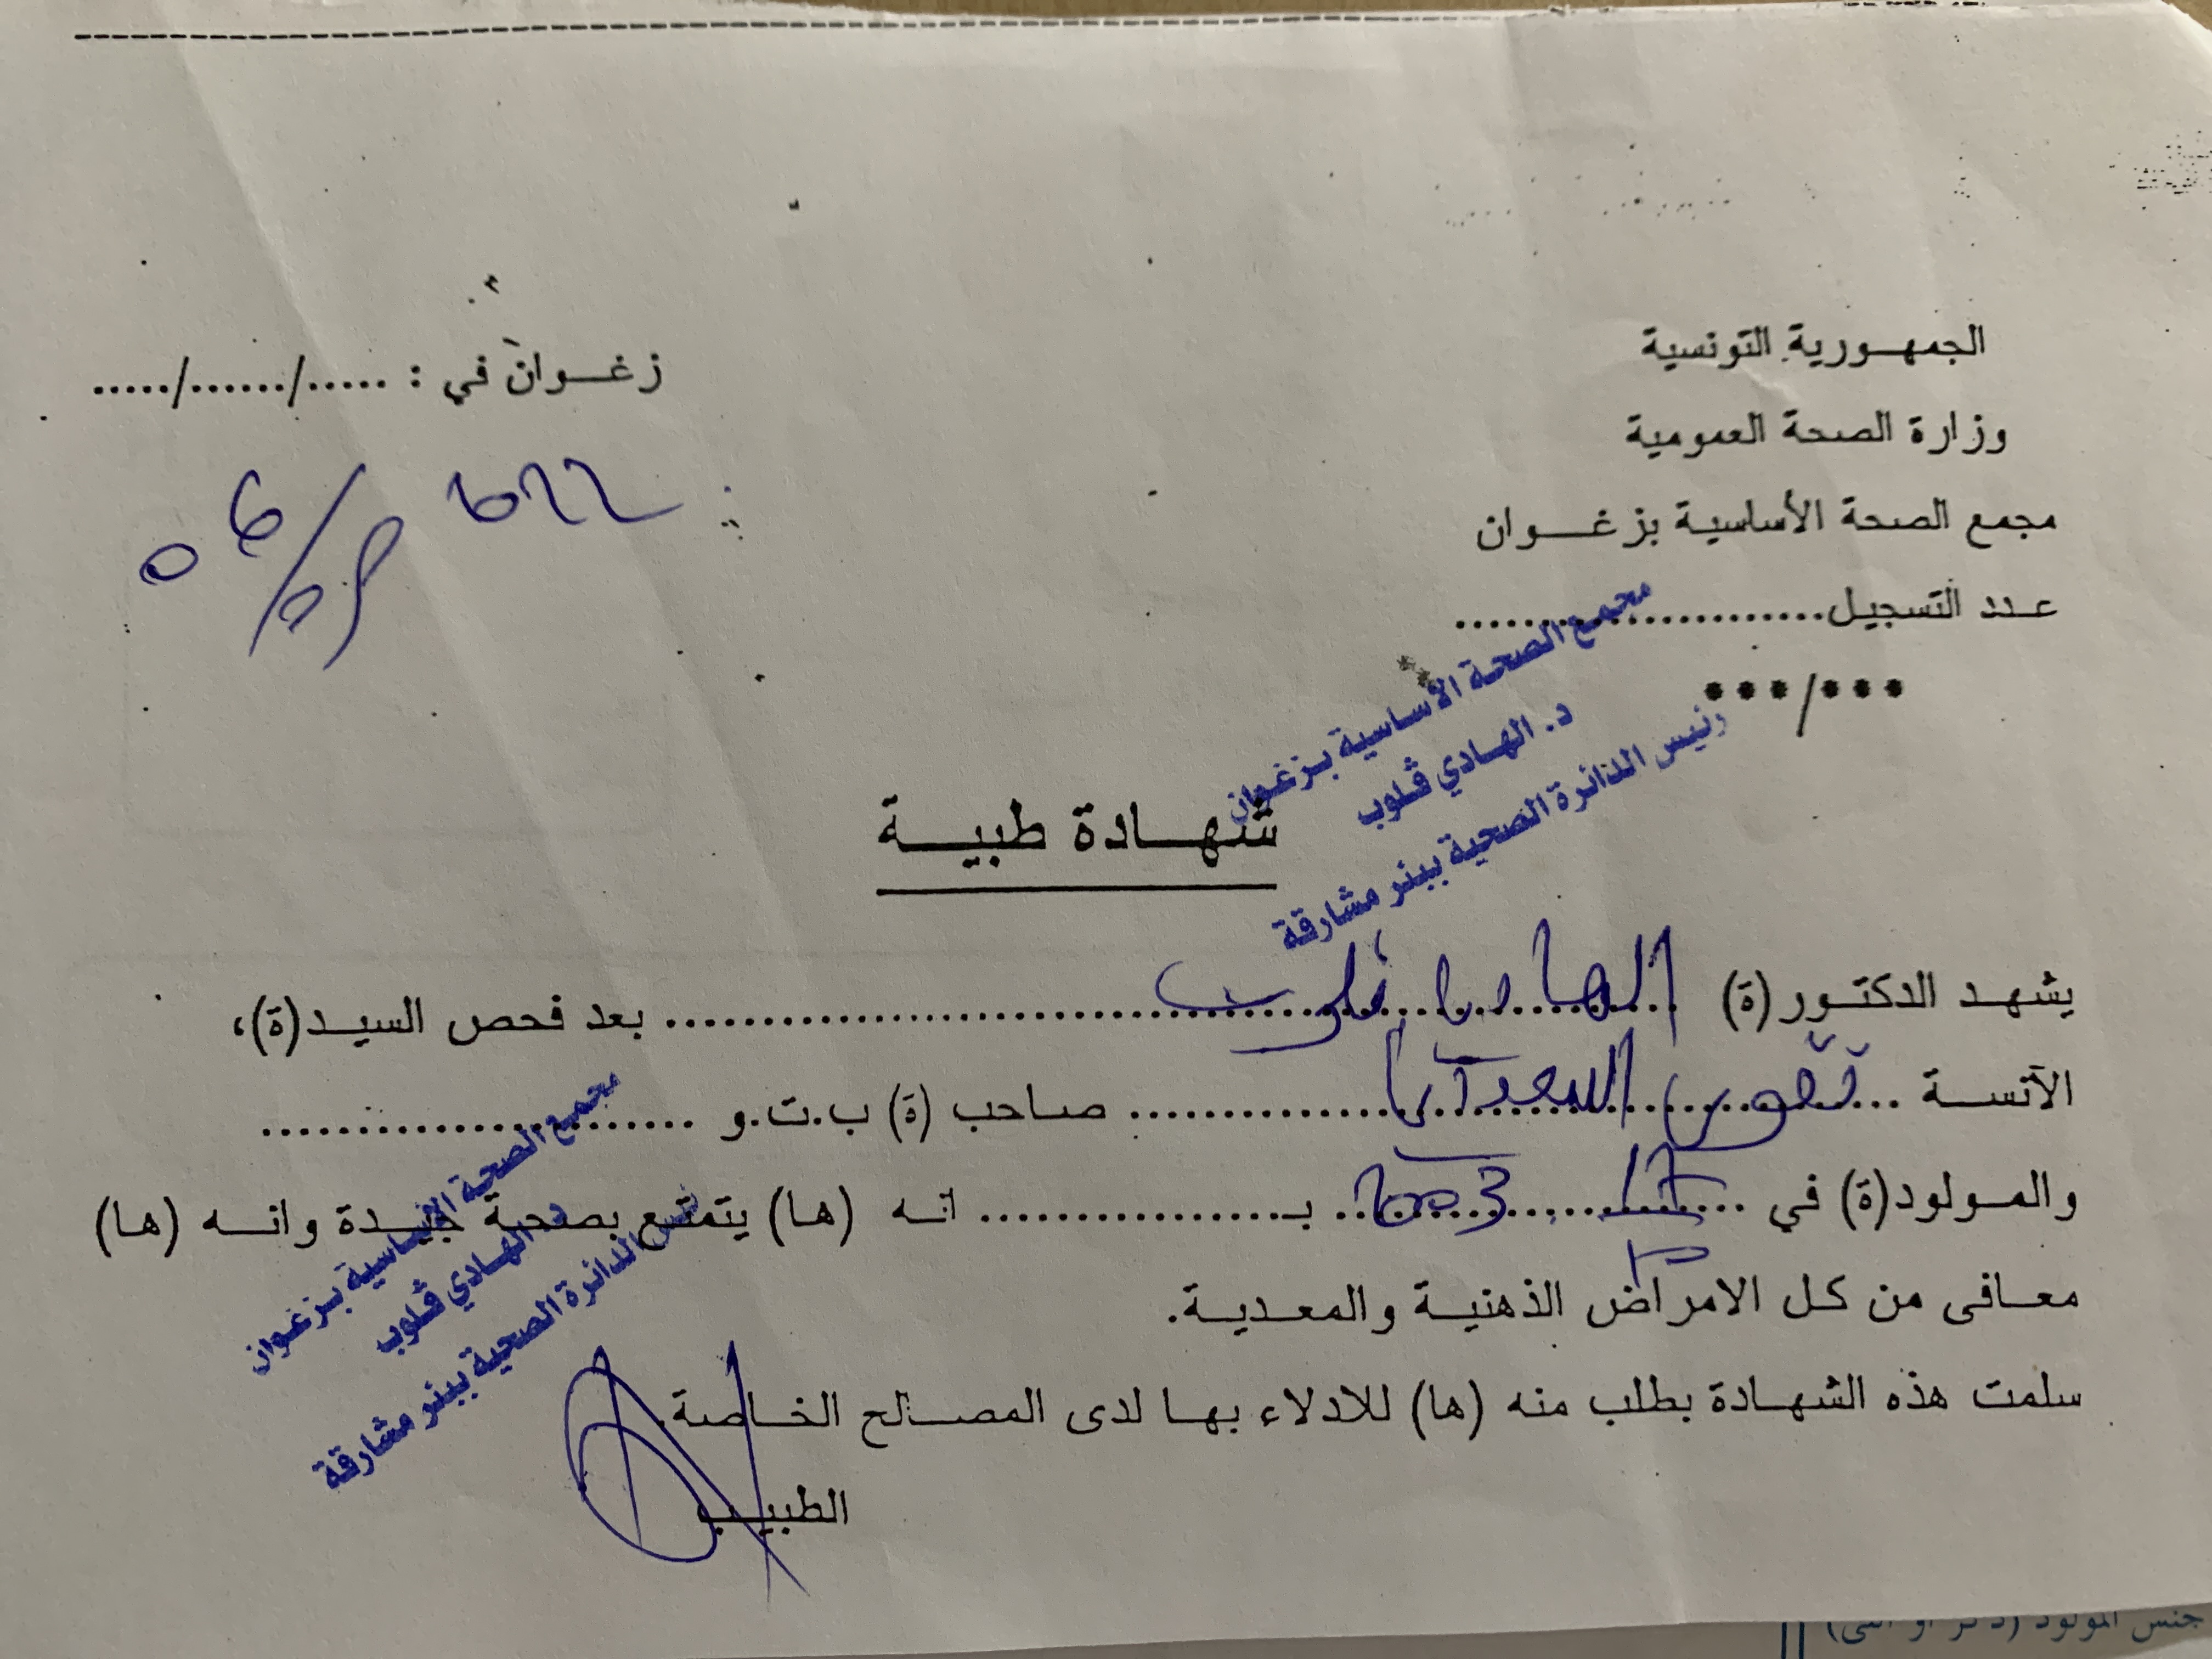 الجمهورية التونسية
وزارة الصحة العمومية
مجمع الصحة الأساسية بزغوان
عدد التسجيل......................
***/***
زغوان في : ...../....../.....
مجمع الصحة الأساسية بزغوان
د. الهادي ڨلوب
رئيس الدائرة الصحية ببئر مشارقة
شهادة طبية
يشهد الدكتور(ة) الهادي ڨلوب بعد فحص السيد(ة)،
الآنسة ... السعيداني صاحب (ة) ب.ت.و ........................
والمولود(ة) في ... 2003 بـ.................. انه (ها) يتمتع بصحة جيدة وانه (ها)
معافى من كل الامراض الذهنية والمعدية.
سلمت هذه الشهادة بطلب منه (ها) للادلاء بها لدى المصالح الخاصة.
الطبيب
مجمع الصحة الأساسية بزغوان
د. الهادي ڨلوب
رئيس الدائرة الصحية ببئر مشارقة
جنس المولود (ذكر أو أنثى)